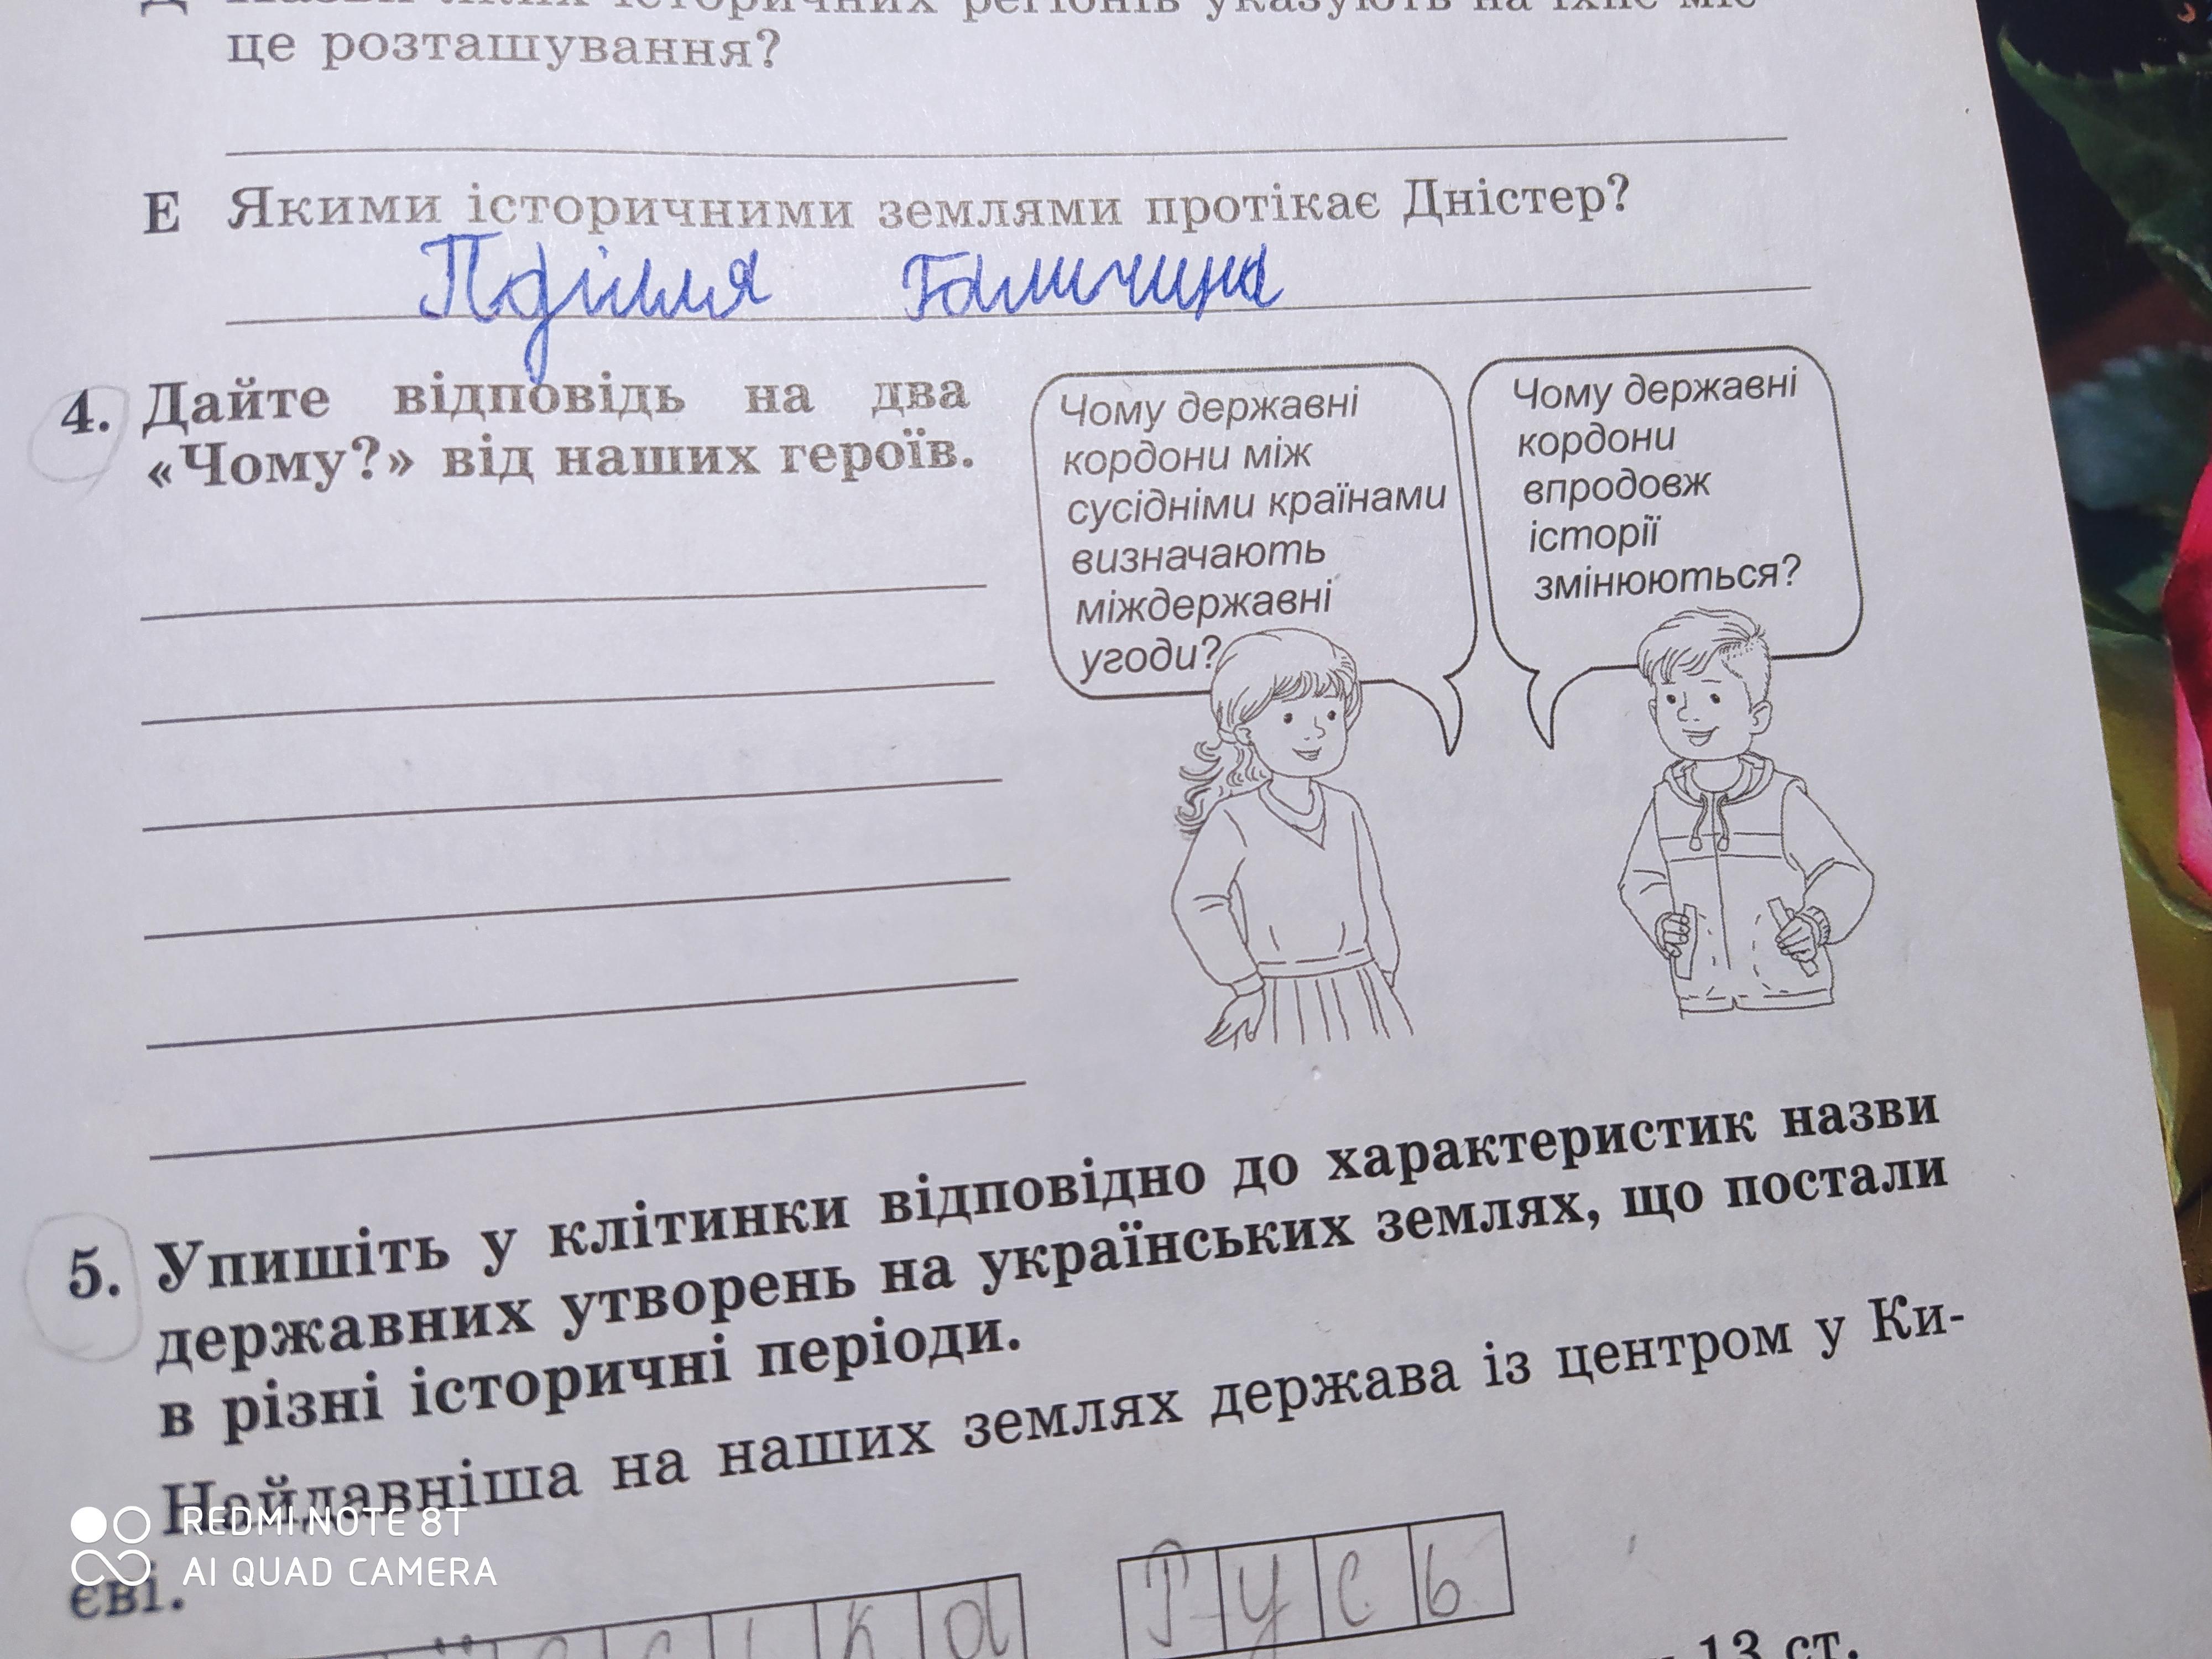 історичних регіонів указують на їхнє міс-
це розташування?
Е Якими історичними землями протікає Дністер?
Поділля Галичина
4. Дайте відповідь на два
«Чому?» від наших героїв.
Чому державні
кордони між
сусідніми країнами
визначають
міждержавні
угоди?
Чому державні
кордони
впродовж
історії
змінюються?
5. Упишіть у клітинки відповідно до характеристик назви
державних утворень на українських землях, що постали
в різні історичні періоди.
Найдавніша на наших землях держава із центром у Ки-
єві.
Русь
13 ст.
REDMI NOTE 8T
AI QUAD CAMERA